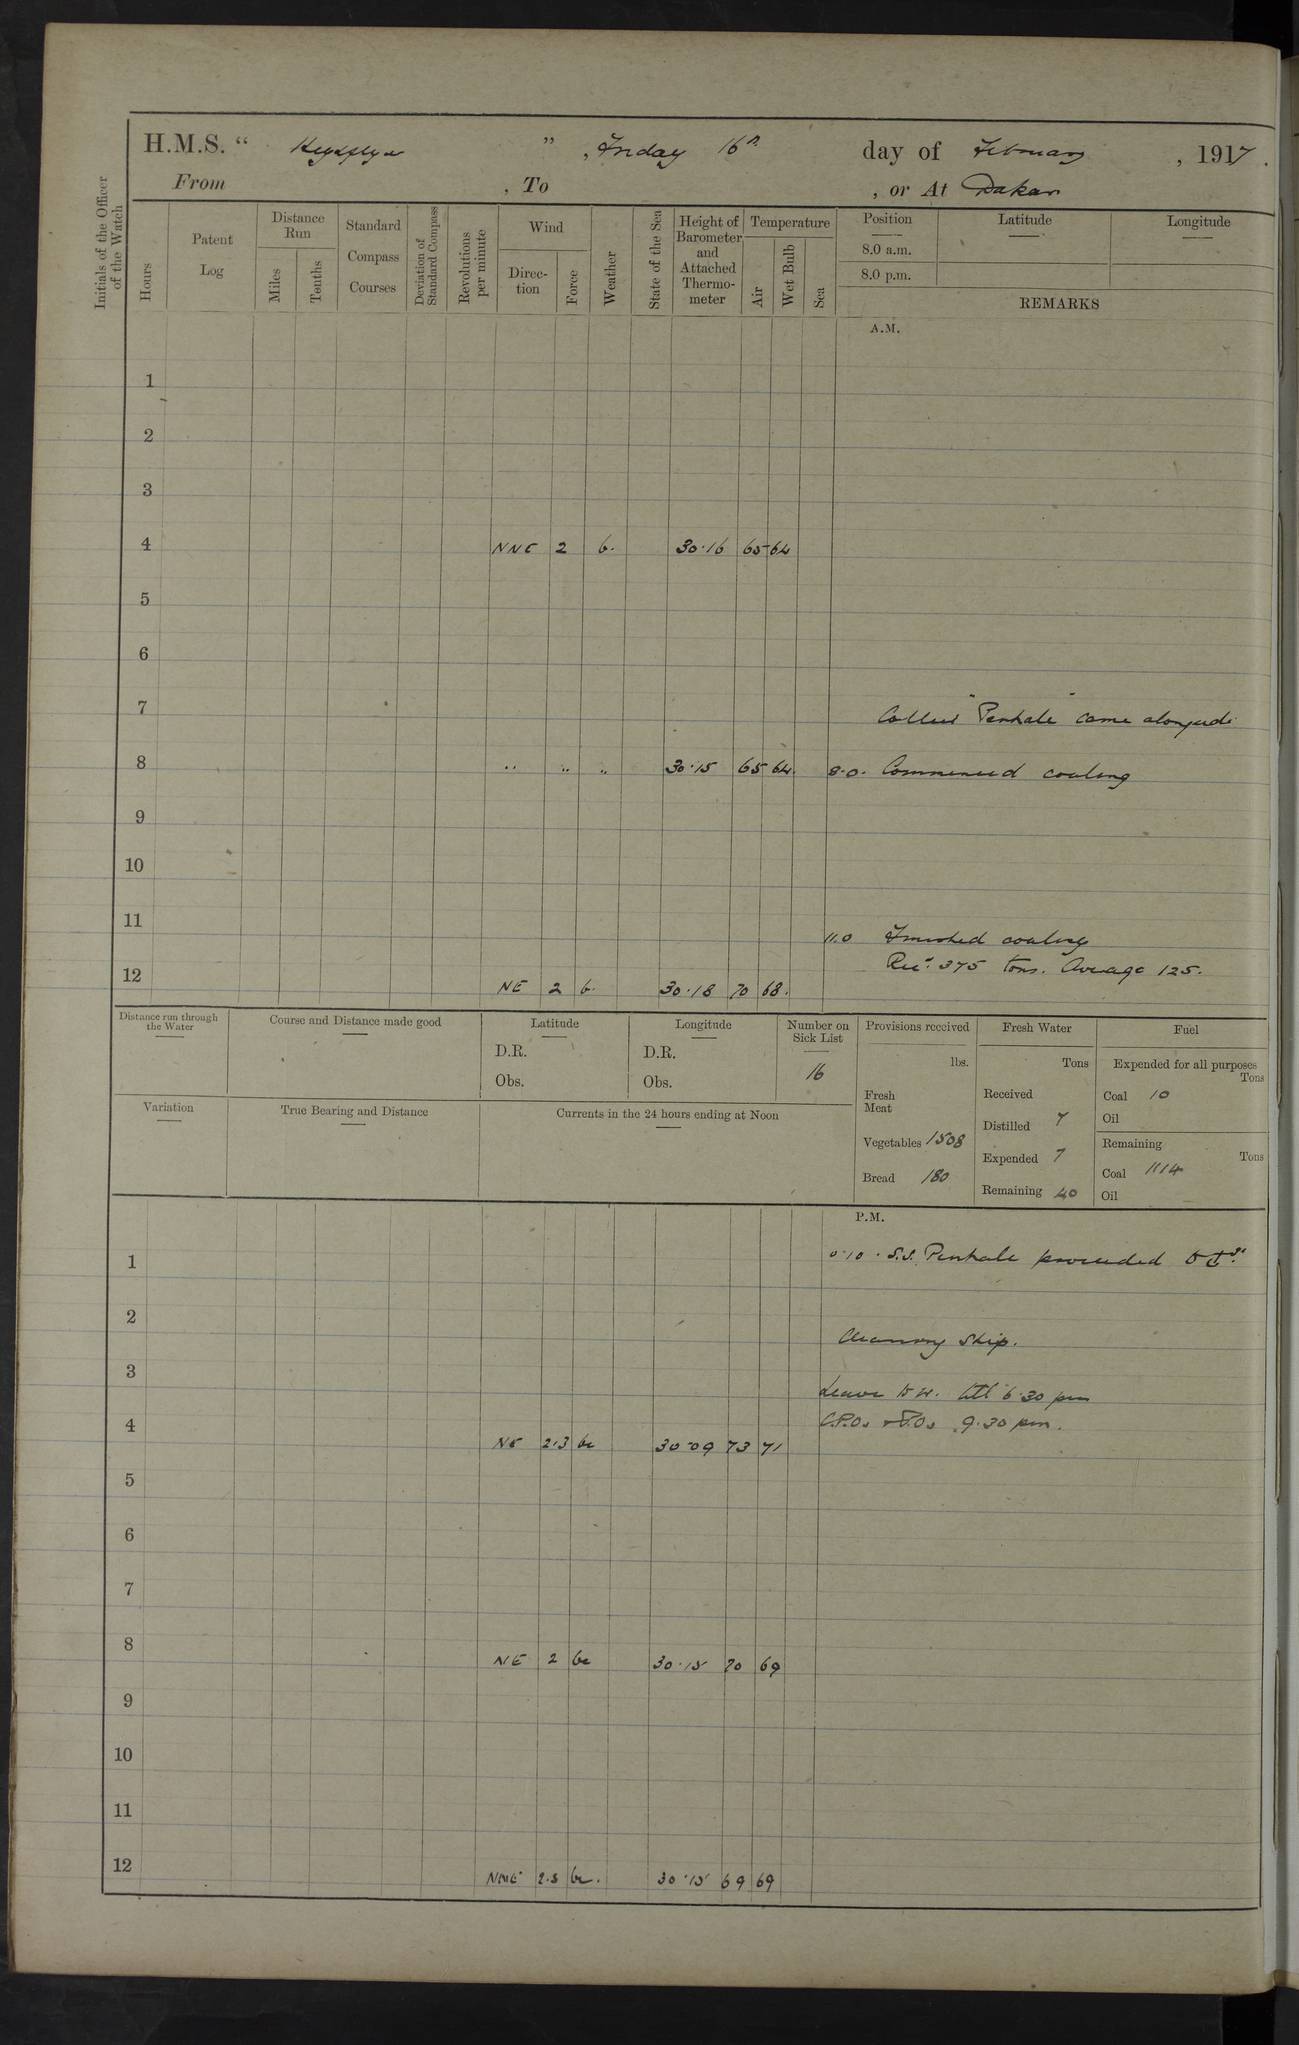 H.M.S. " Highflyer ", Friday 16th day of February, 1917.
From , To , or At Dakar
Initials of the Officer of the Watch
Hours
Patent Log
Distance Run
Miles
Tenths
Standard Compass Courses
Deviation of Standard Compass
Revolutions per minute
Wind
Direction
Force
Weather
State of the Sea
Height of Barometer and Attached Thermometer
Temperature
Air
Wet Bulb
Sea
Position
Latitude
Longitude
8.0 a.m.
8.0 p.m.
REMARKS
A.M.
1
2
3
4 NNE 2 b. 30.16 65 64
5
6
7 Collier "Penhale" came alongside
8 " " " 30.15 65 64. 8.0. Commenced coaling
9
10
11 11.0 Finished coaling
Recd. 375 tons. Average 125.
12 NE 2 b. 30.18 70 68.
Distance run through the Water
Course and Distance made good
Latitude
D.R.
Obs.
Longitude
D.R.
Obs.
Number on Sick List
16
Provisions received
lbs.
Fresh Meat
Vegetables 1508
Bread 180
Fresh Water
Tons
Received
Distilled 7
Expended 7
Remaining 40
Fuel
Expended for all purposes
Tons
Coal 10
Oil
Remaining
Tons
Coal 1114
Oil
Variation
True Bearing and Distance
Currents in the 24 hours ending at Noon
P.M.
1 0.10. S.S. Penhale proceeded to
2
Cleaning Ship.
3
Leave to W. till 6.30 pm
C.P.Os & P.Os 9.30 pm.
4 NE 2.3 bc 30.09 73 71
5
6
7
8 NE 2 bc 30.15 70 69
9
10
11
12 NNE 2.3 bc. 30.15 69 69